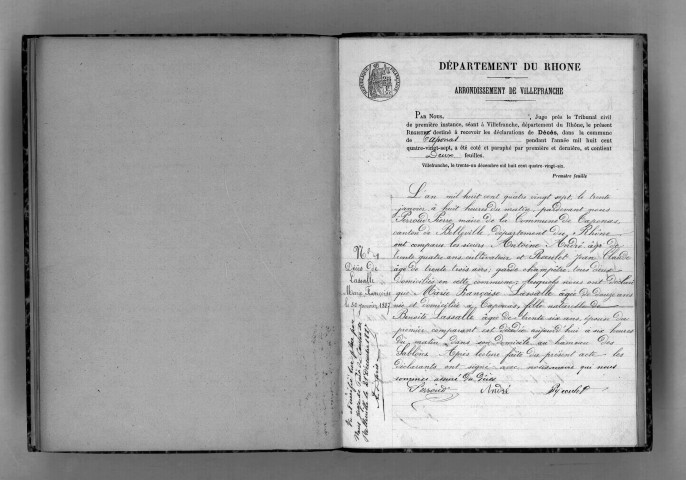 DÉPARTEMENT DU RHONE
ARRONDISSEMENT DE VILLEFRANCHE
PAR NOUS, , Juge près le Tribunal civil
de première instance, séant à Villefranche, département du Rhône, le présent
REGISTRE destiné à recevoir les déclarations de Décès, dans la commune
de Taponas pendant l'année mil huit cent
quatre-vingt-sept, a été coté et paraphé par première et dernière, et contient
Deux feuilles.
Villefranche, le trente-un décembre mil huit cent quatre-vingt-six.
Première feuille
L'an mil huit cent quatre vingt sept, le trente
janvier à huit heures du matin, pardevant nous
Perroud Pierre, maire de la Commune de Taponas,
canton de Belleville département du Rhône
ont comparu les sieurs Antoine André âgé de
trente quatre ans cultivateur et Jean Claude
âgé de trente trois ans, garde champêtre, tous deux
domiciliés en cette commune; lesquels nous ont déclaré
que Marie Françoise Lassalle âgée de douze ans
née et domiciliée à Taponas, fille naturelle de
Benoite Lassalle âgée de trente six ans, épouse du
premier comparant est décédée aujourd'hui à six heures
du matin dans son domicile au hameau des
Sablons. Après lecture faite du présent acte les
déclarants ont signé avec nous après que nous
sommes assuré du décès
Perroud André
N° 1
Décès de
Lassalle
Marie Françoise
le 30 janvier 1887